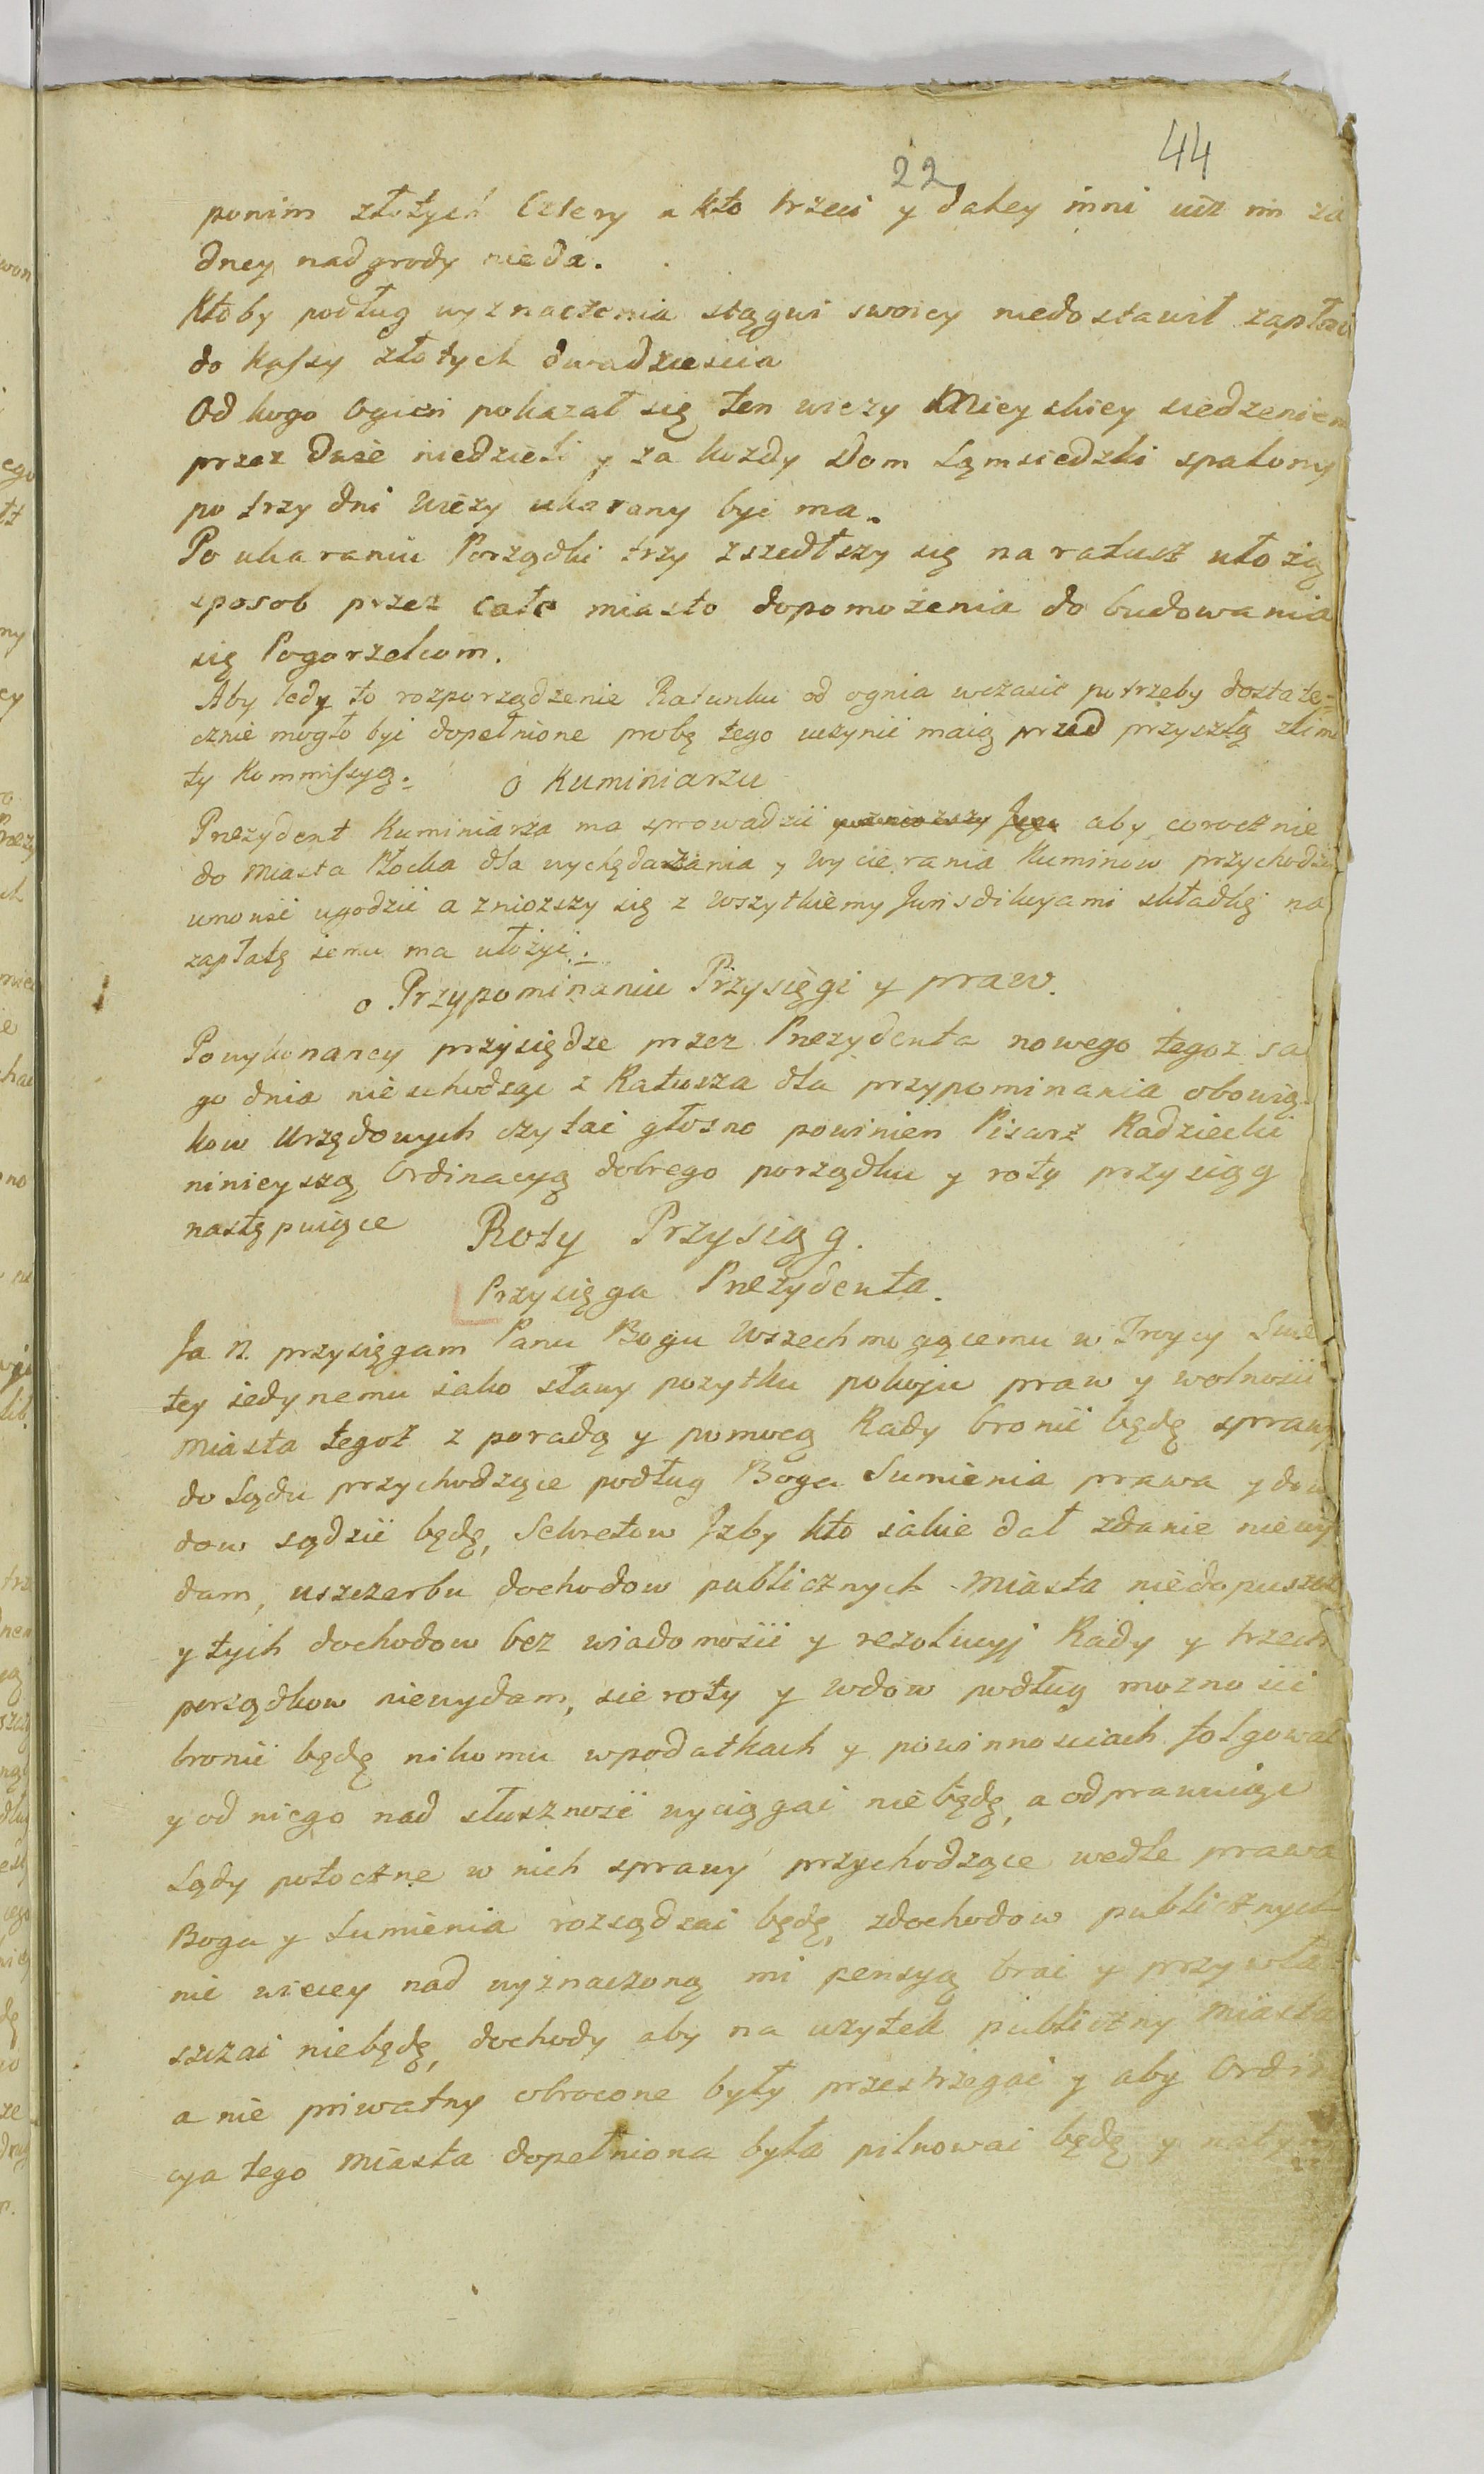 44
22
ponim złotych cztery a kto trzeci y daley inni iuż im ża
dney nadgrody nieda.
Ktoby podług wyznaczenia stągwi swoiey niedostawił zapłaci
do Kassy złotych dwadziescia
Od kogo Ogien pokazał się ten wiezy Mieyskiey siedzeniem
przez dwie niedzieli y za kozdy Dom Sąmsiedzki spalony
po trzy dni Wiezy ukarany być ma.
Po ukaraniu Porządki trzy zszedłszy się na ratusz ułożą
sposob przez całe miasto dopomożenia do budowania
się Pogorzelcom.
Aby tedy to rozporządzenie Ratunku od ognia wczasie potrzeby dostate=
cznie mogło być dopełnione probę tego uczynić maią przed przyszłą z limi
ty Kommissyą.
O Kuminiarzu
Prezydent Kuminiarza ma sprowadzić aby corocznie
do Miasta Płocka dla wychędażania y wycierania Kuminow przychodził
umowić ugodzić a zniozszy się z Wszytkiemy Jurisdikcyami składkę na
zapłatę iemu ma ułożyć.
o Przypominaniu Przysięgi y praw.
Powykonaney przysiędze przez Prezydenta nowego tegoz sa
go dnia nieschodząc z Ratusza dla przypominania obowią
kow Urzędowych czytać głosno powinien Pisarz Radziecki
ninieyszą Ordinacyą dobrego porządku y roty przysiąg
następuiące
Roty Przysiąg.
Przysięga Prezydenta.
Ja N. przysięgam Panu Bogu Wszechmogącemu w Troycy Swię
tey iedynemu iako sławy pozytku pokoju praw y wolności
miasta tegoż z poradą y pomocą Rady bronić będę sprawy
do Sądu przychodzące podług Boga Sumienia prawa y dowo
dow sądzić będę, Sekretow Izby kto iakie dał zdanie niewy
dam, uszczerbu dochodow publicznych Miasta niedopuszcz
y tych dochodow bez wiadomości y rezolucyj Rady y trzech
porządkow niewydam, sieroty y wdow podług moznosci
bronić będę nikomu wpodatkach y powinnosciach folgować
y od niego nad słuszność wyciągać niebędę, a odprawuiąc
Sądy potoczne w nich sprawy przychodzące wedle prawa
Boga y Sumienia rozsądzać będę, zdochodow publicznych
nic więcey nad wyznaczoną mi pensyą brać y przywła
szczać niebędę, dochody aby na uzytek publiczny Miasta
a nie priwatny obrocone były przestrzegać y aby Ordin
cya tego Miasta dopełniona była pilnować będę y